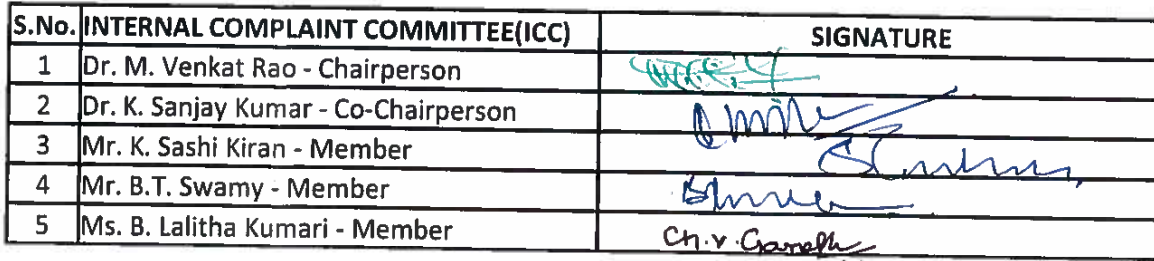 S.No. INTERNAL COMPLAINT COMMITTEE(ICC) SIGNATURE
1 Dr. M. Venkat Rao - Chairperson
2 Dr. K. Sanjay Kumar - Co-Chairperson
3 Mr. K. Sashi Kiran - Member
4 Mr. B.T. Swamy - Member
5 Ms. B. Lalitha Kumari - Member Ch.v.Ganesh